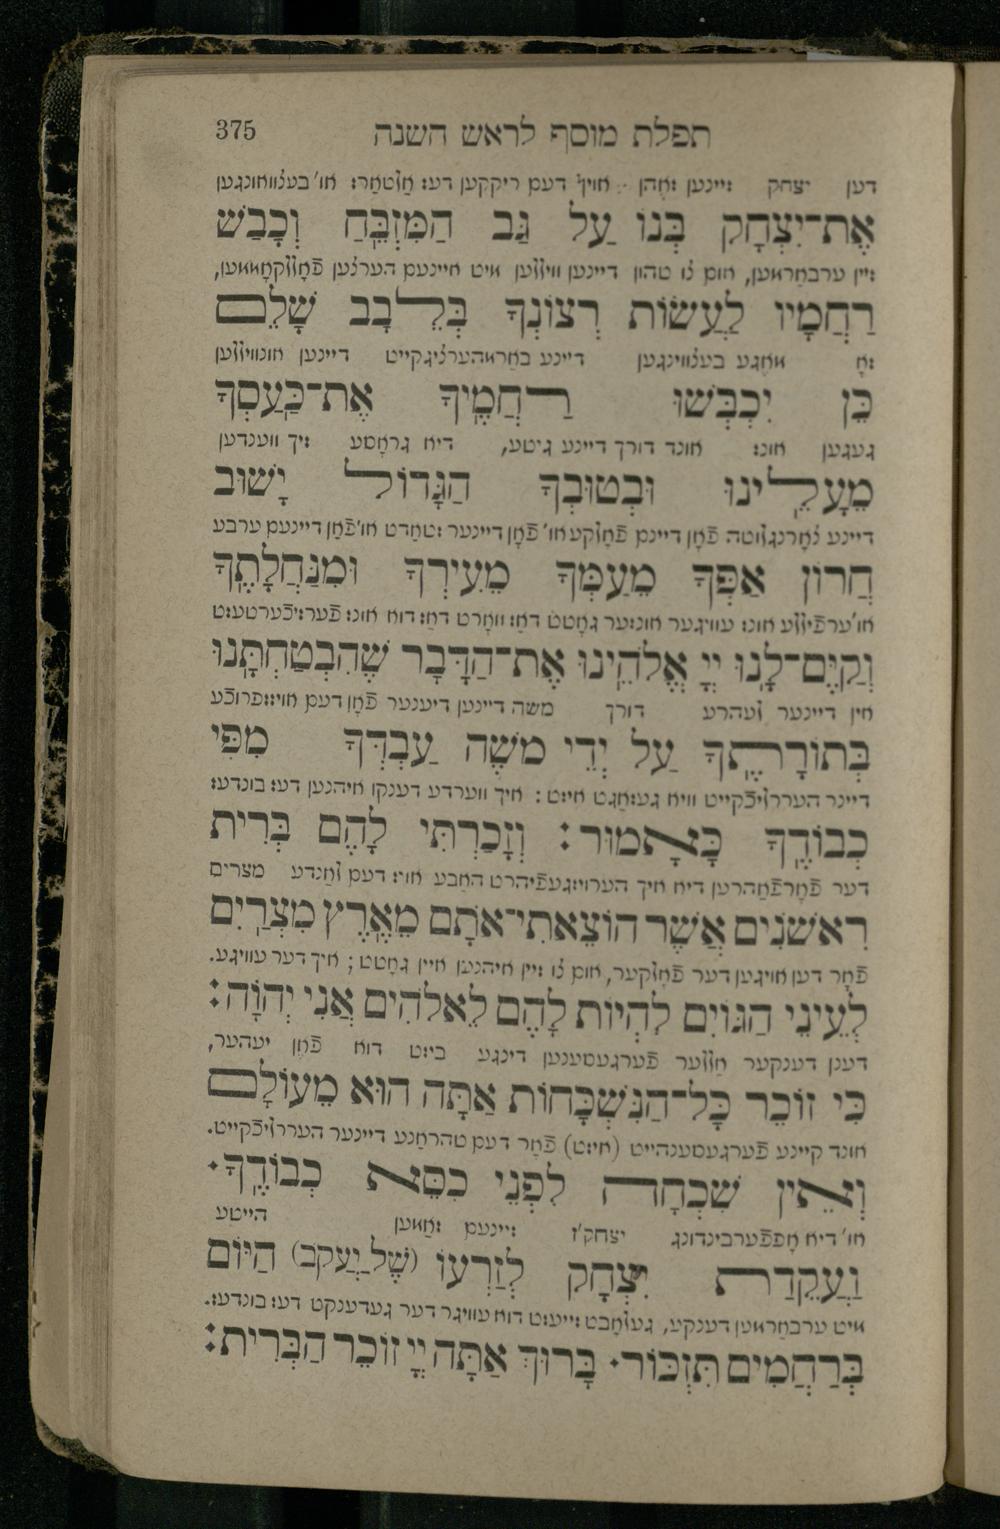 תפלת מוסף לראש השנה 375
דען יצחק זיינען זאָהן אויף דעם ריקקען דעז אַלטאַרז או' בעצוואונגען
אֶת־יִצְחָק בְּנוֹ עַל גַּב הַמִּזְבֵּחַ וְכָבַשׁ
זיין ערבאַרמען, אום צו טהון דיינען ווילען מיט איינעם הערצען פֿאָללקאָממען,
רַחֲמָיו לַעֲשׂוֹת רְצוֹנְךָ בְּלֵבָב שָׁלֵם
זאָ מאֶגע בעצווינגען דיינע באַרמהערציגקייט דיינען אונווילען
כֵּן יִכְבְּשׁוּ רַחֲמֶיךָ אֶת־כַּעַסְךָ
געגען אונז אונד דורך דיינע גיטע, דיא גראָסע זיך ווענדען
מֵעָלֵינוּ וּבְטוּבְךָ הַגָּדוֹל יָשׁוּב
דיינע צאָרנגלוטה פֿאָן דיינם פֿאָלקע או' פֿאָן דיינער שטאַדט או' פֿאָן דיינעם ערבע
חֲרוֹן אַפְּךָ מֵעַמְּךָ מֵעִירְךָ וּמִנַּחֲלָתֶךָ
או' ערפֿיללע אונז עוויגער אונזער גאָטט דאַז וואָרט דאַז דוא אונז
וְקַיֶּם־לָנוּ יְיָ אֱלֹהֵינוּ אֶת־הַדָּבָר שֶׁהִבְטַחְתָּנוּ
אין דיינער לעהרע דורך משה דיינען דיענער פֿאָן דעם
בְּתוֹרָתֶךָ עַל יְדֵי מֹשֶׁה עַבְדְּךָ מִפִּי
דיינר העררליכֿקייט וויא געזאַגט איזט : איך ווערדע דענקן איהנען דעז בונדעז
כְבוֹדֶךָ כָּאָמוּר : וְזָכַרְתִּי לָהֶם בְּרִית
דער פֿאָרפֿאַהרען דיא איך הערויזגעפֿיהרט האַבע אויז דעם לאַנדע מצרים
רִאשֹׁנִים אֲשֶׁר הוֹצֵאתִי־אֹתָם מֵאֶרֶץ מִצְרַיִם
פֿאָר דען אויגען דער פֿאֶלקער, אום צו זיין איהנען איין גאָטט ; איך דער עוויגע.
לְעֵינֵי הַגּוֹיִם לִהְיוֹת לָהֶם לֵאלֹהִים אֲנִי יְהוָֹה :
דען דענקער אַללער פֿערגעססענען דינגע ביזט דוא פֿאָן יעהער,
כִּי זוֹכֵר כָּל־הַנִּשְׁכָּחוֹת אַתָּה הוּא מֵעוֹלָם
אונד קיינע פֿערגעססענהייט (איזט) פֿאָר דעם טהראָנע דיינער העררליכֿקייט.
וְאֵין שִׁכְחָה לִפְנֵי כִסֵּא כְבוֹדֶךָ.
או' דיא אָפּפֿערבינדונג יצחק'ז זיינעם זאַמען הייטע
וַעֲקֵדַת יִצְחָק לְזַרְעוֹ (שֶׁל יַעֲקֹב) הַיּוֹם
מיט ערבאַרמען דענקע, געלאָבט זייעזט דוא עוויגר דער געדענקט דעז בונדעז.
בְּרַחֲמִים תִּזְכּוֹר. בָּרוּךְ אַתָּה יְיָ זוֹכֵר הַבְּרִית :